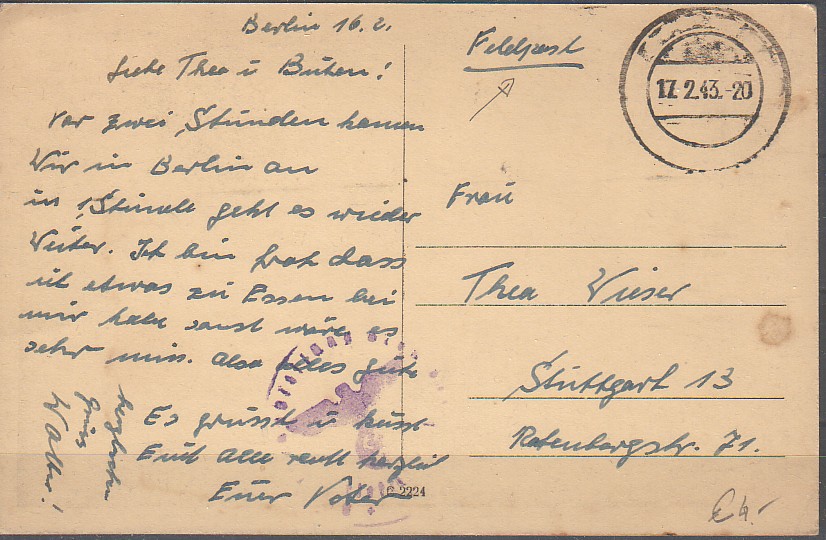 Berlin 16.2.
Liebe Thea u Buben!
vor zwei Stunden kamen
Wir in Berlin an
in 1 Stunde geht es wieder
Weiter. Ich bin froh dass
ich etwas zu Essen bei
mir habe sonst wäre es
sehr mis. Also alles gute
Es grüsst u küsst
Euch alle recht herzlich
Euer Vater
herzlichen
Gruss
Walter!
Feldpost
17.2.43.-20
Frau
Thea Wieser
Stuttgart 13
Rotenbergstr. 71.
2224